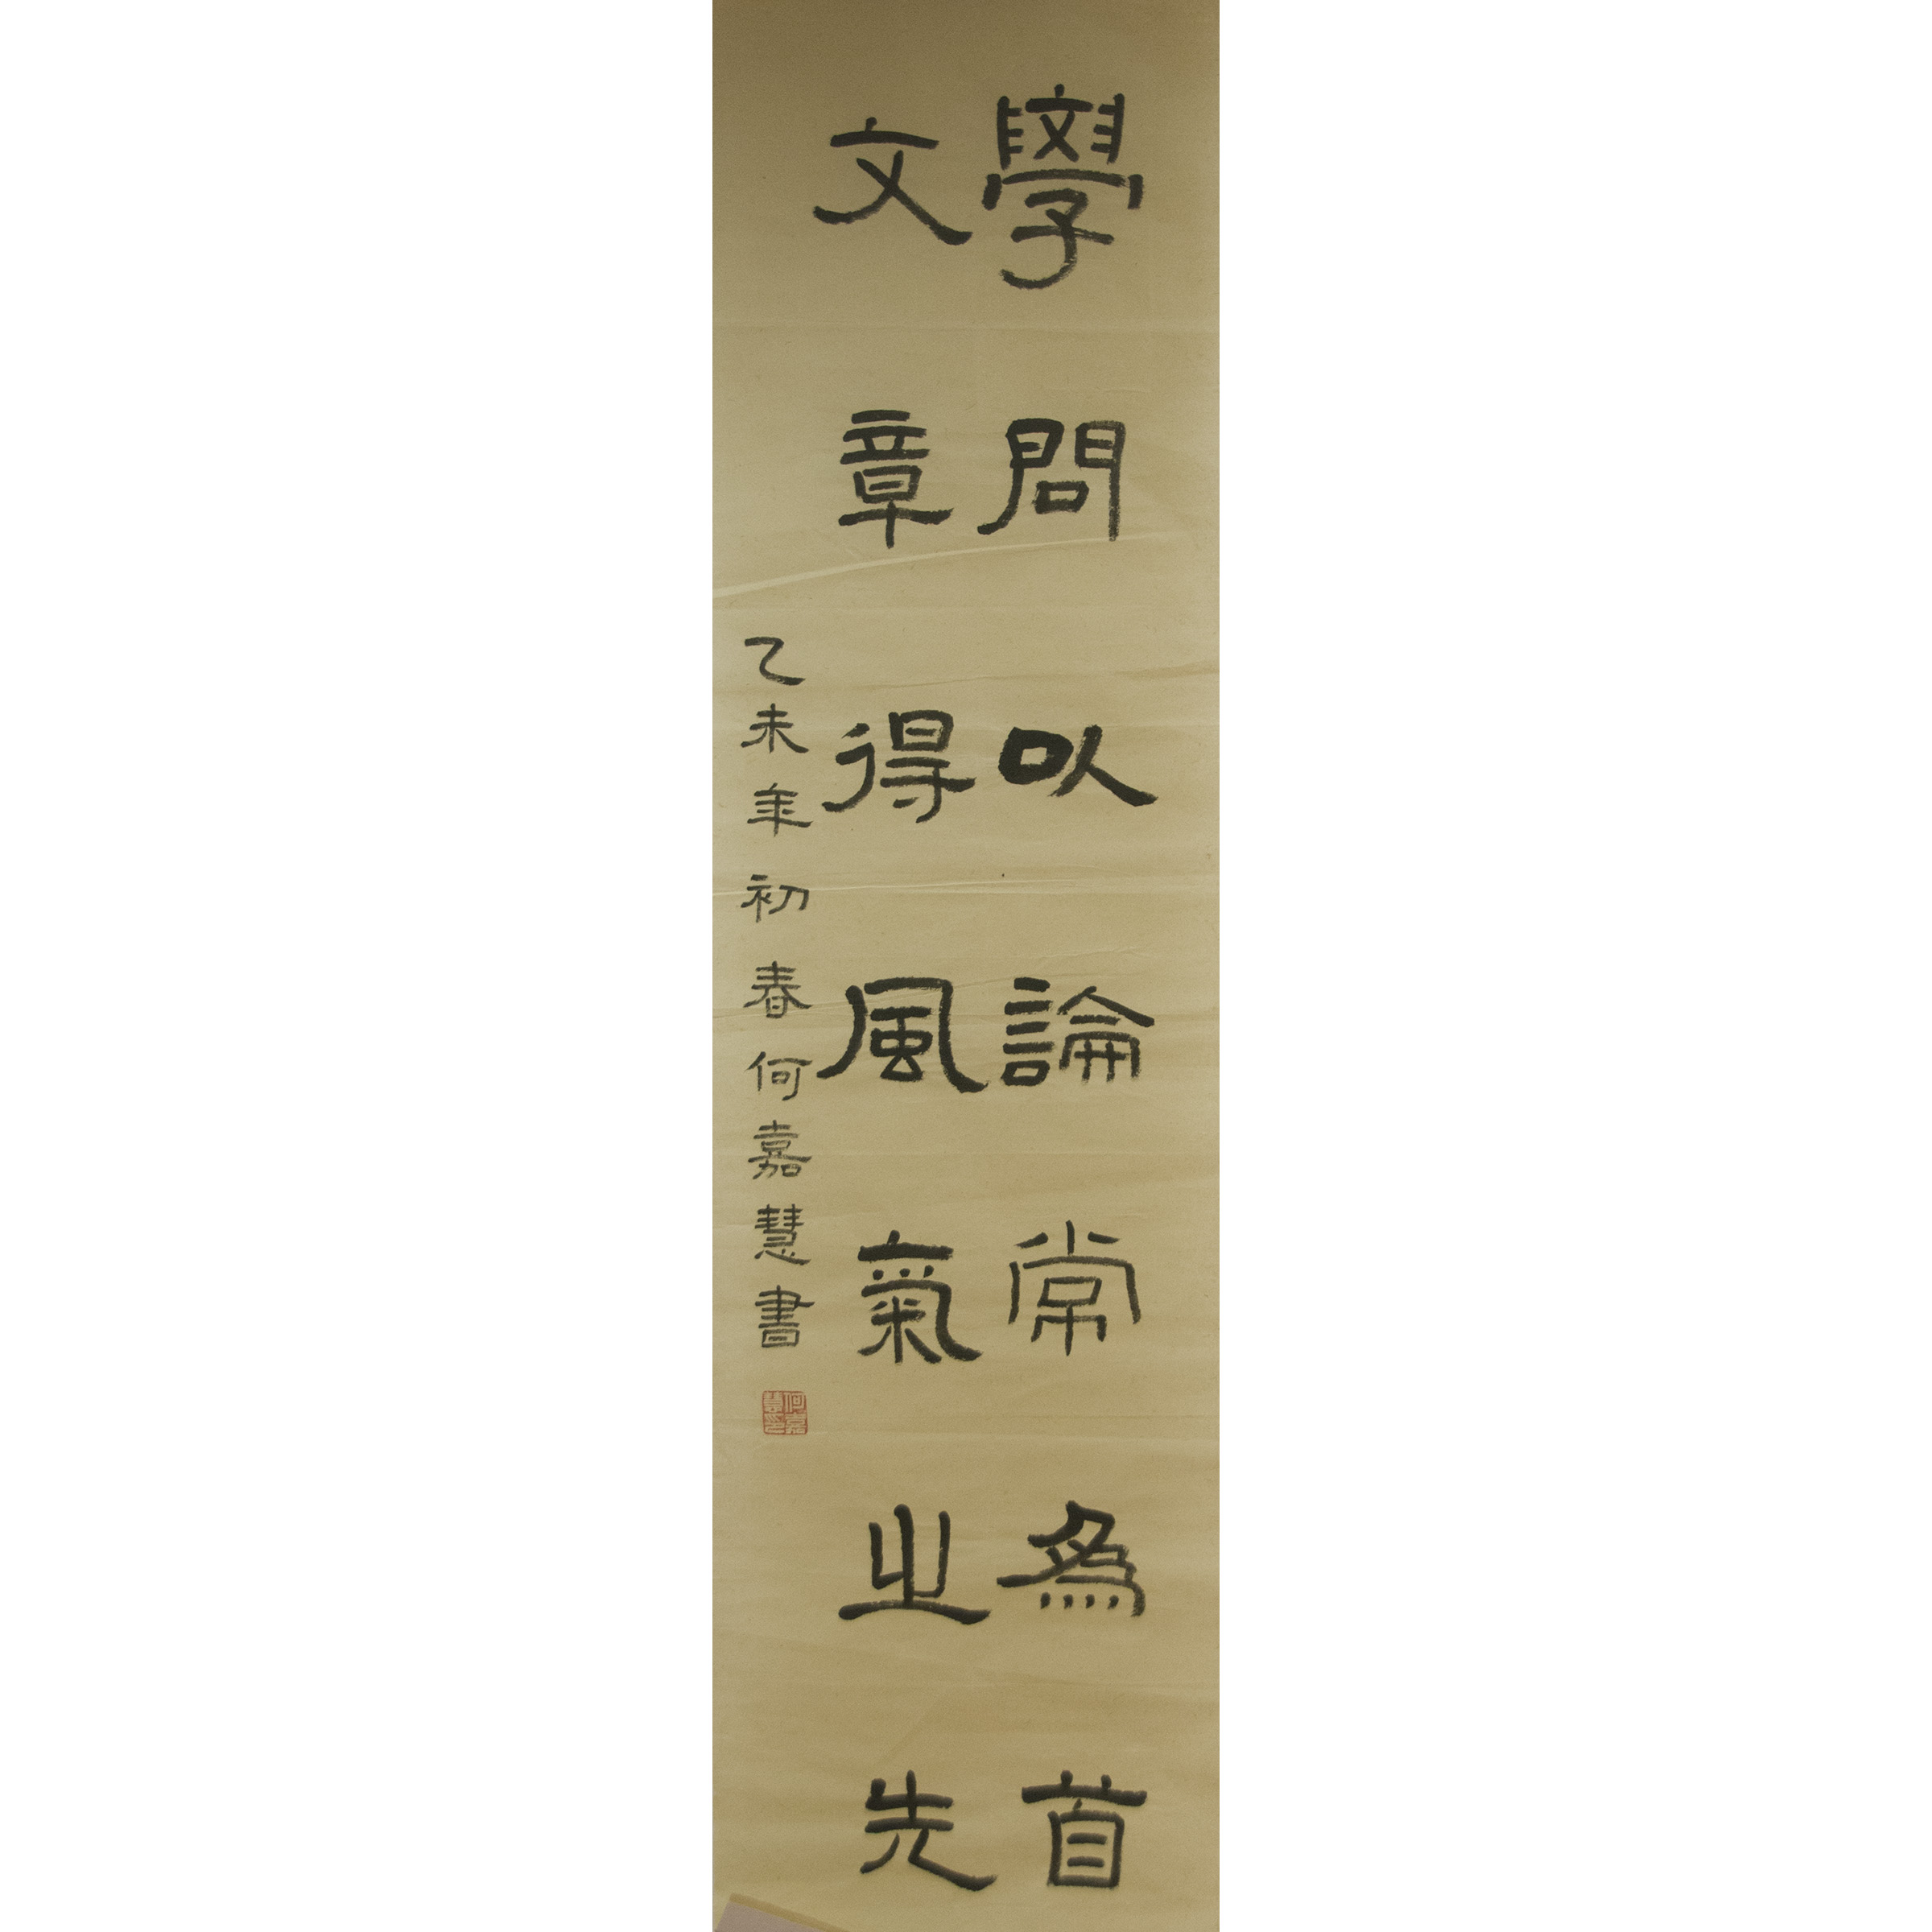 學問以論常為首
文章得風氣之先
乙未年初春何嘉慧書
何嘉慧印